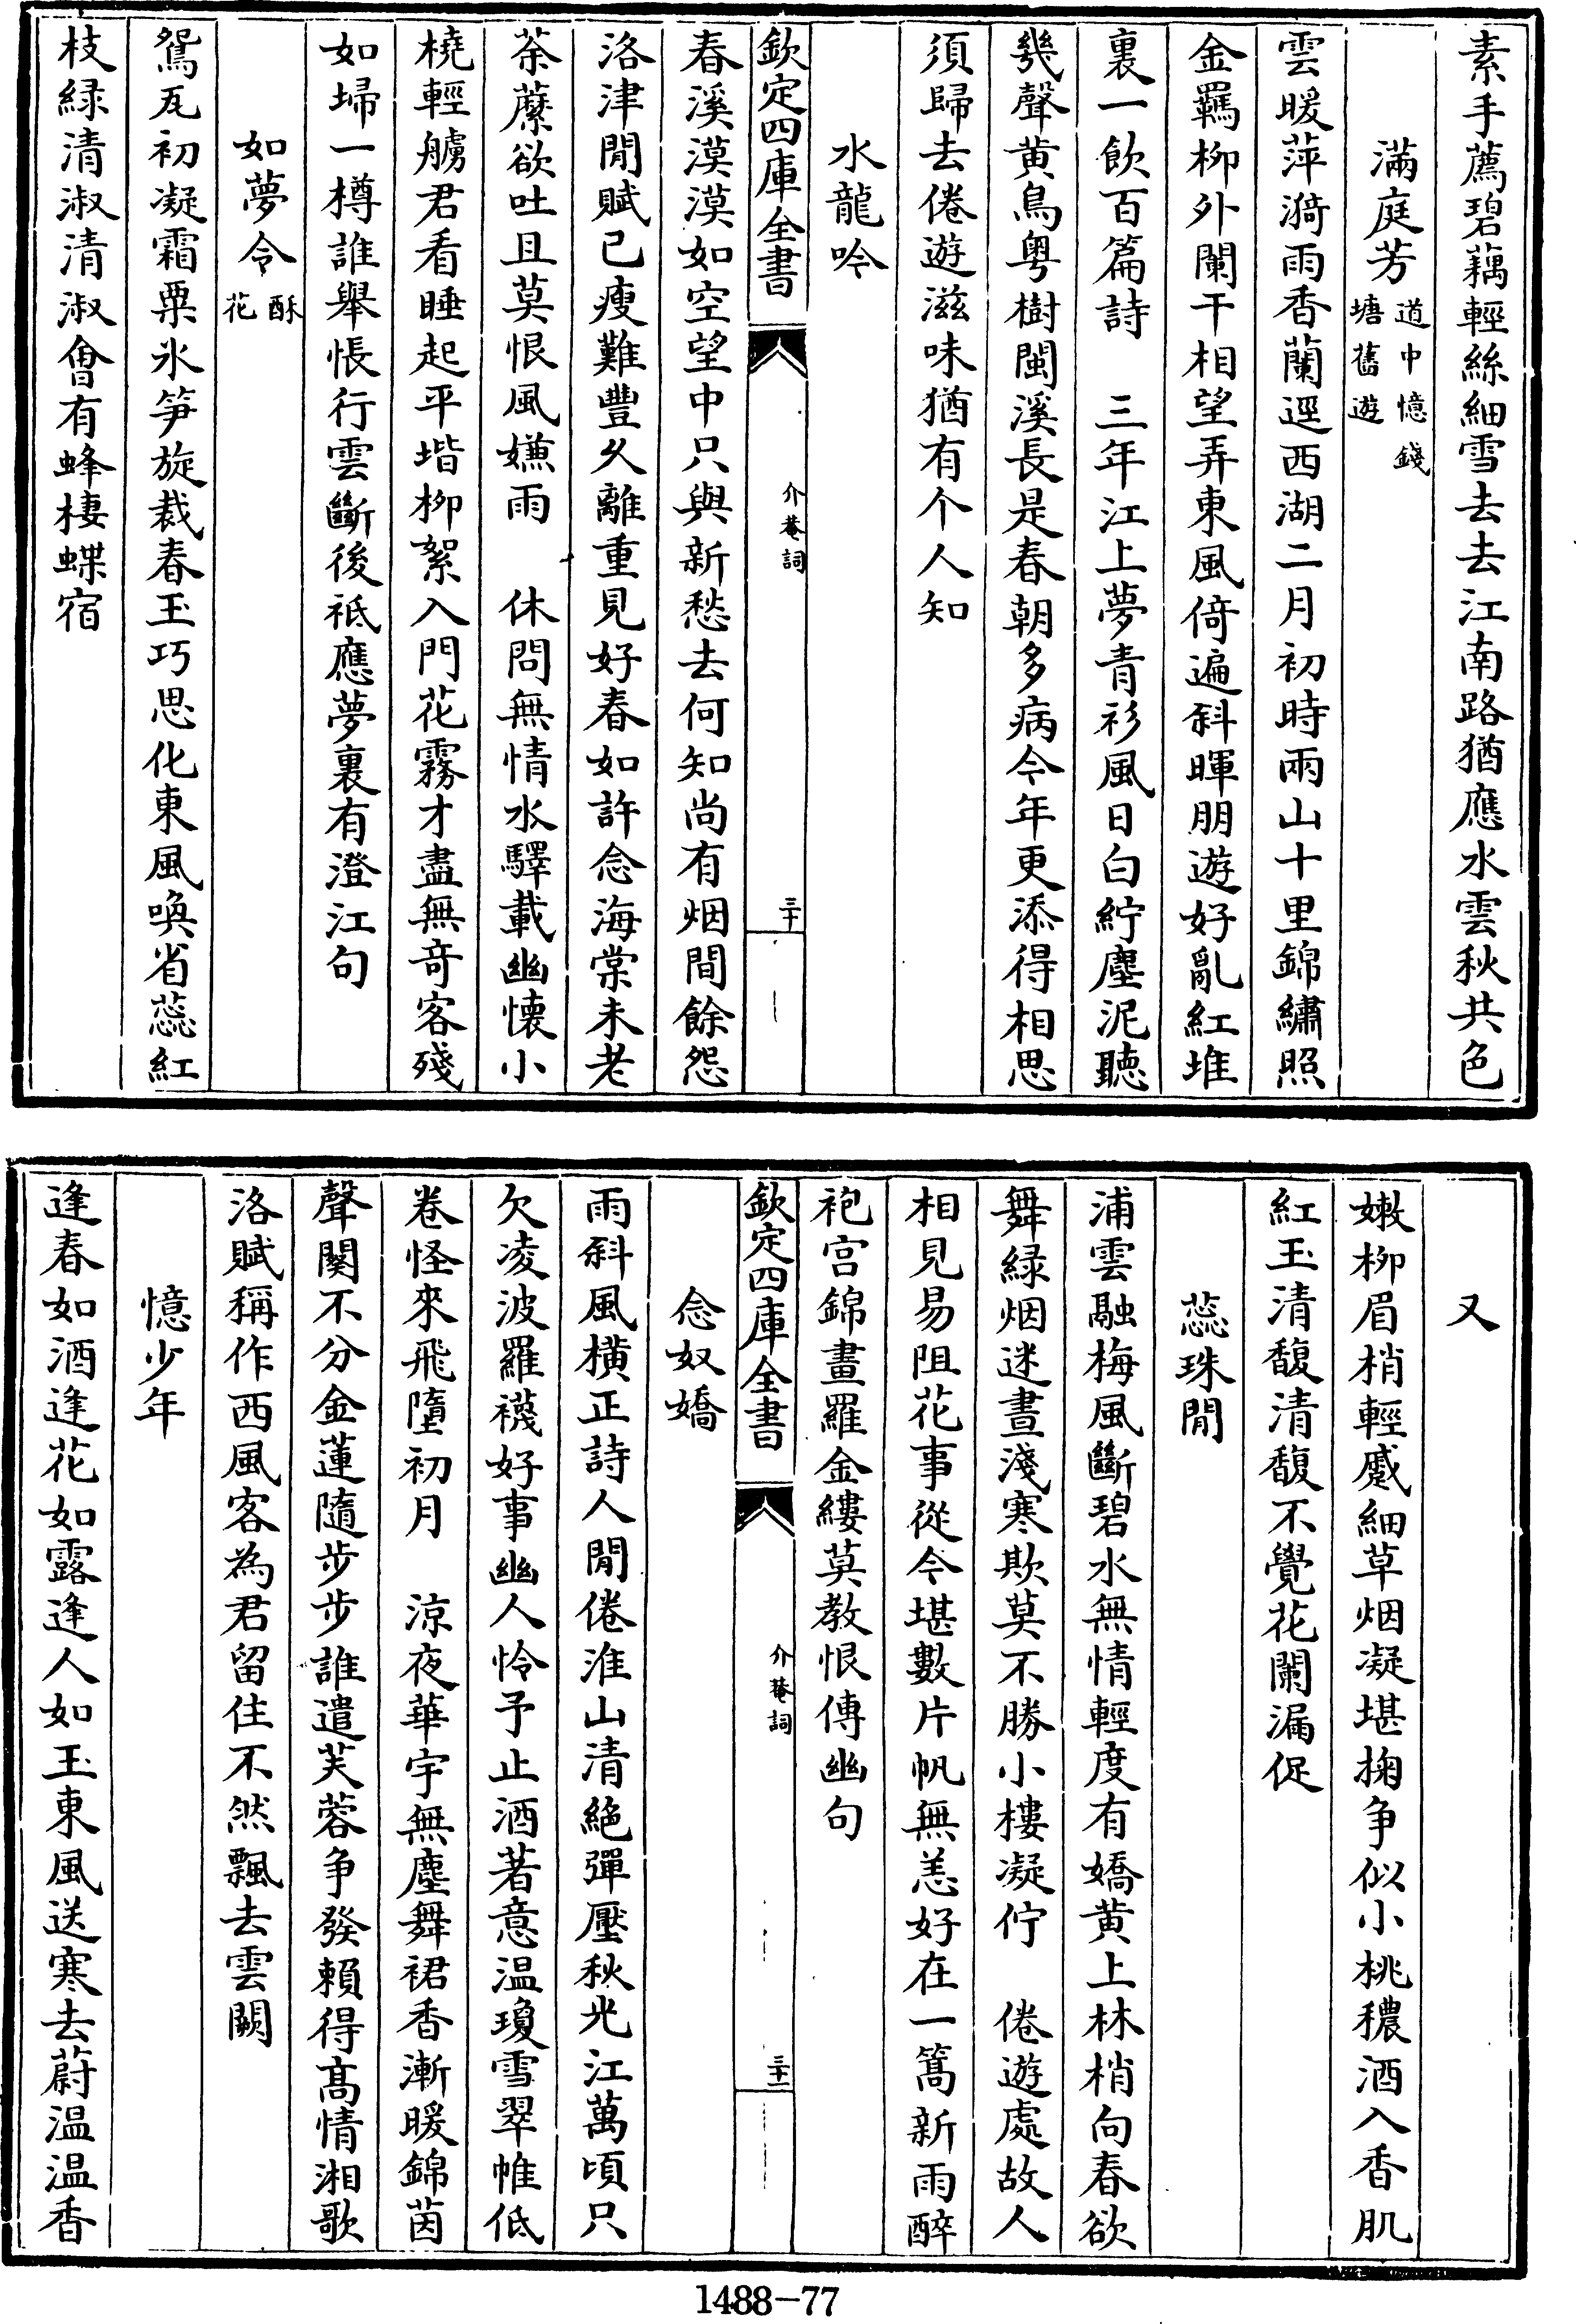 素手薦碧藕輕絲細雪去去江南路猶應水雲秋共色
滿庭芳道中憶錢塘舊遊
雲暖萍漪雨香蘭逕西湖二月初時兩山十里錦繡照
金羈柳外闌干相望弄東風倚遍斜暉朋遊好亂紅堆
裏一飲百篇詩　三年江上夢青衫風日白紵塵泥聽
幾聲黄鳥粤樹閩溪長是春朝多病今年更添得相思
須歸去倦遊滋味猶有个人知
水龍吟
欽定四庫全書　介菴詞　三十
春溪漠漠如空望中只與新愁去何知尚有烟間餘怨
洛津閒賦已瘦難豐乆離重見好春如許念海棠未老
荼蘼欲吐且莫恨風嫌雨　休問無情水驛載幽懐小
橈輕艣君看睡起平堦柳絮入門花霧才盡無竒客殘
如埽一樽誰舉悵行雲斷後衹應夢裏有澄江句
如夢令酥花
鴛瓦初凝霜粟氷笋旋裁春玉巧思化東風喚省蕊紅
枝緑清淑清淑㑹有蜂棲蝶宿
又
嫩柳眉梢輕蹙細草烟凝堪掬争似小桃穠酒入香肌
紅玉清馥清馥不覺花闌漏促
蕊珠閒
浦雲融梅風斷碧水無情輕度有嬌黄上林梢向春欲
舞緑烟迷晝淺寒欺莫不勝小樓凝佇　倦遊處故人
相見易阻花事從今堪數片帆無恙好在一篙新雨醉
袍宫錦畫羅金縷莫教恨傳幽句
欽定四庫全書　介菴詞　三十一
念奴嬌
雨斜風横正詩人閒倦淮山清絶彈壓秋光江萬頃只
欠凌波羅襪好事幽人怜予止酒著意温瓊雪翠帷低
卷怪來飛墮初月　涼夜華宇無塵舞裙香漸暖錦茵
聲闋不分金蓮隨步步誰遣芙蓉争發賴得髙情湘歌
洛賦稱作西風客為君留住不然飄去雲闕
憶少年
逢春如酒逢花如露逢人如玉東風送寒去蔚温温香
1488－77